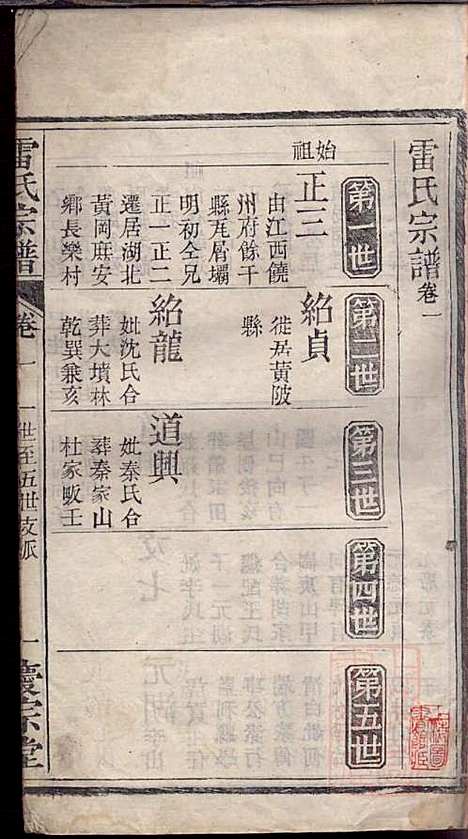 雷氏宗譜卷一
第一世
第二世
第三世
第四世
第五世
始祖
正三
由江西饒
州府餘干
縣瓦屑壩
明初仝兄
正一正二
遷居湖北
黃岡麻安
鄉長樂村
紹貞
徙居黃陂
縣
紹龍
妣沈氏合
葬大墳林
乾巽兼亥
道興
妣秦氏合
葬秦家山
杜家畈壬
雷氏宗譜
卷一
一世至五世支派
一
慶宗堂